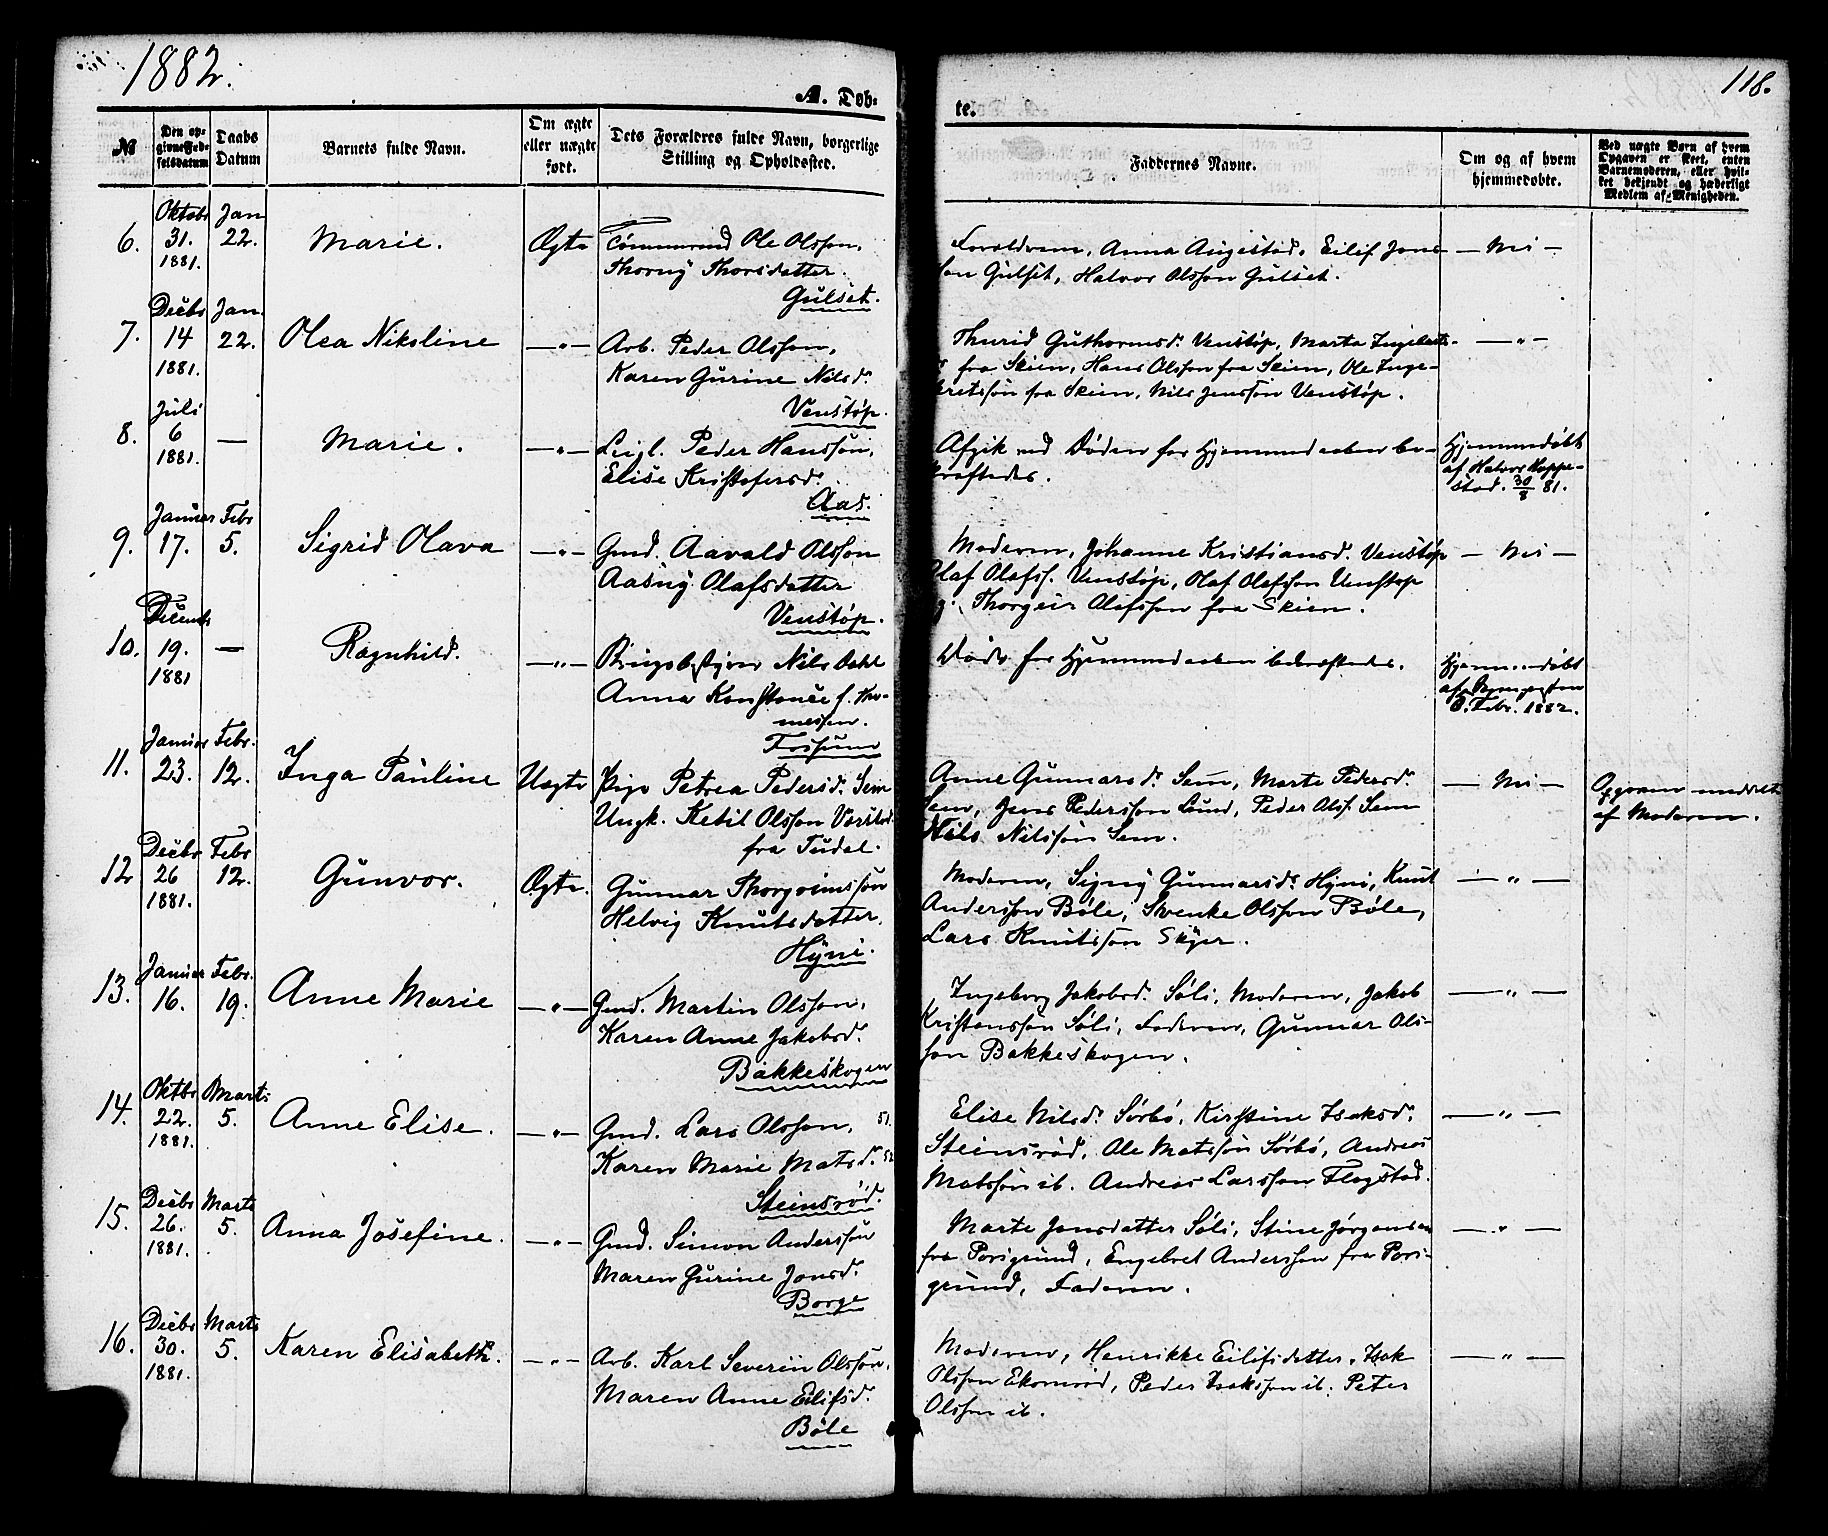 1882.
118.
A. Døb-
te.
№
Den op-
givne Fød-
selsdatum
Daabs
Datum
Barnets fulde Navn.
Om ægte
eller uægte
født.
Dets Forældres fulde Navn, borgerlige
Stilling og Opholdssted.
Faddernes Navne.
Om og af hvem
hjemmedøbt.
Ved uægte Børn af hvem
Opgaven er skeet, enten
Barnemoderen, eller hvil-
ket bekjendt og hæderligt
Medlem af Menigheden.
6.
Oktobr
31.
1881.
Jan
22.
Marie.
Ægte
Tømmermd Ole Olsson,
Thorny Thorsdatter.
Gulset.
Forældrene, Anna Augestad, Eilif Jons-
søn Gulset, Halvor Olsson Gulset.
— Nei —
7.
Decbr
14
1881.
Jan.
22.
Olea Nikoline
— " —
Arb. Peder Olsson,
Karen Gurine Nilsd.
Venstøp.
Thurid Guthormsd. Venstøp, Marta Ingebrets-
fra Skien, Hans Olsson fra Skien, Ole Inge-
bretssøn fra Skien, Nils Jenssøn Venstøp.
— " —
8.
Juli
6
1881.
—
Marie.
— " —
Leigl. Peder Hanssøn,
Elise Kristofersd.
Aas.
Afgik ved Døden før Hjemmedaaben be-
kræftedes.
Hjemmedøbt
af Halvor Hoppe-
stad. 30/8 81.
9.
Januar
17.
Febr
5.
Sigrid Olava
— " —
Gmd. Aavald Olsson
Aasny Olafsdatter
Venstøp.
Moderen, Johanne Kristiansd. Venstøp
Olaf Olafss. Venstøp, Olaf Olafsson Venstøp
og Thorgeir Olafsson fra Skien.
— Nei —
10.
Decembr
19.
1881
—
Ragnhild.
— " —
Brugsbestyrer Nils Dahl
Anna Konstance f. Tho-
messen.
Fossum
Døde før Hjemmedaaben bekræftedes.
Hjemmedøbt
5. Febr. 1882.
11.
Januar
23.
Febr.
12.
Inga Pauline
Uægte
Pige Petrea Pedersd. Sem
Ungk. Ketil Olsson
fra Tudal.
Anne Gunnarsd. Sem, Marte Pedersd.
Sem, Jens Pedersson Lund, Peder Olss. Sem
Nils Nilssøn Sem.
— Nei —
Opgaven meddelt
af Moderen.
12
Decbr
26
1881.
Febr
12.
Gunvor.
Ægte.
Gunnar Thorgrimssøn
Helvig Knutsdatter.
Hyni.
Moderen, Signy Gunnarsd. Hyni, Knut
Andersson Bøle, Svenke Olsson Bøle,
Lars Knutsson Skyer.
— " —
13.
Januar
16.
Febr.
19.
Anne Marie
— " —
Gmd. Martin Olsson,
Karen Anne Jakobsd.
Bakkeskogen
Ingeborg Jakobsd. Søli, Moderen, Jakob
Kristenssøn Søli, Faderen, Gunnar Ols-
søn Bakkeskogen.
— " —
14.
Oktbr
22.
1881.
Marts
5.
Anne Elise.
— " —
Gmd. Lars Olsson, 51.
Karen Marie Matsd. 52
Steinsrød.
Elise Nilsd. Sørbø, Kirstine Isaksd.
Steinsrød, Ole Matssøn Sørbø, Andreas
Matssøn ib. Andreas Larsson Flogstad.
— " —
15.
Decbr
26.
1881.
Marts
5.
Anna Josefine.
— " —
Gmd. Simon Anderssøn
Maren Gurine Jonsd.
Borge
Marte Jonsdatter Søli, Stine Jørgensen
fra Porsgrund, Engebret Andersson fra Pors-
grund, Faderen.
— " —
16.
Decbr
30.
1881.
Marts
5.
Karen Elisabeth.
— " —
Arb. Karl Severin Olssøn,
Maren Anne Eilifsd.
Bøle
Moderen, Henrikke Eilifsdatter, Isak
Olsson Ekornrød, Peder Isaksson ib. Peter
Olsson ib.
— " —